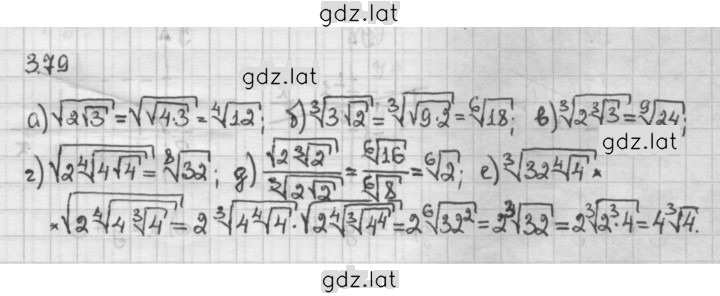 gdz.lat
3.79
gdz.lat
а) √(2√3) = √(√(4·3)) = ⁴√12; б) ³√(3√2) = ³√(√(9·2)) = ⁶√18; в) ³√(2³√3) = ⁹√24;
gdz.lat
г) √(2⁴√(4√4)) = ⁸√32; д) √(2³√2)/³√(2√2) = ⁶√16/⁶√8 = ⁶√2; е) ³√(32⁴√4) ×
× √(2⁴√(4³√4)) = 2³√(4⁴√4) · √(2⁴√(³√(4⁴))) = 2⁶√(32²) = 2³√32 = 2³√(2³·4) = 4³√4.
gdz.lat